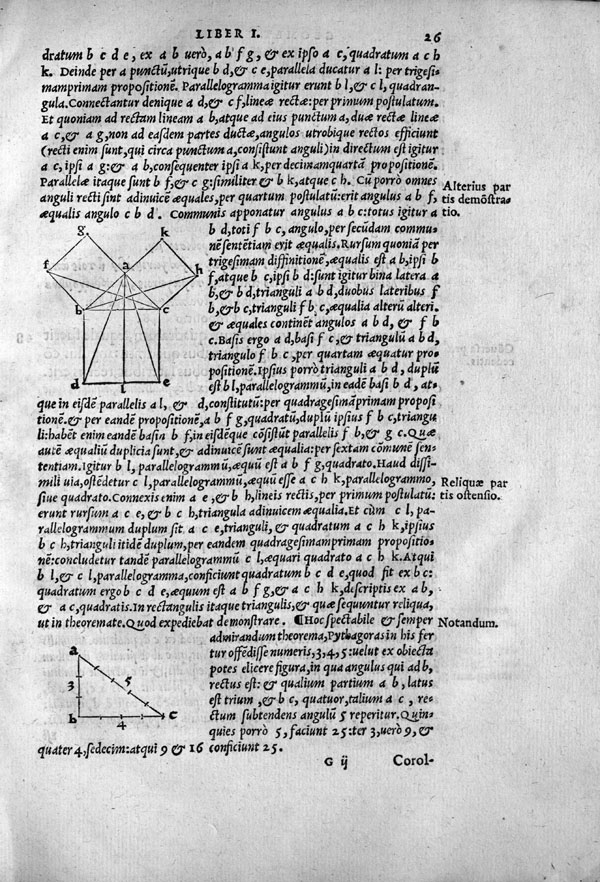 LIBER I. 26
dratum b c d e, ex a b uerò, a b f g, & ex ipso a c, quadratum a c h
k. Deinde per a punctũ, utrique b d, & c e, parallela ducatur a l: per trigesi-
mamprimam propositionẽ. Parallelogramma igitur erunt b l, & c l, quadran-
gula. Connectantur denique a d, & c f, lineæ rectæ: per primum postulatum.
Et quoniam ad rectam lineam a b, atque ad eius punctum a, duæ rectæ lineæ
a c, & a g, non ad easdem partes ductæ, angulos utrobique rectos efficiunt
(recti enim sunt, qui circa punctum a, consistunt anguli) in directum est igitur
a c, ipsi a g: & a b, consequenter ipsi a k, per decimamquartã propositionẽ.
Parallelæ itaque sunt b f, & c g: similiter & b k, atque c h. Cũ porrò omnes
anguli recti sint adinuicẽ æquales, per quartum postulatũ: erit angulus a b f,
æqualis angulo c b d. Communis apponatur angulus a b c: totus igitur a
Alterius par
tis demõstra-
tio.
b d, toti f b c, angulo, per secũdam commu-
nẽ sentẽtiam erit æqualis. Rursum quoniã per
trigesimam diffinitionẽ, æqualis est a b, ipsi b
f, atque b c, ipsi b d: sunt igitur bina latera a
b, & b d, trianguli a b d, duobus lateribus f
b, & b c, trianguli f b c, æqualia alterũ alteri.
& æquales continẽt angulos a b d, & f b
c. Basis ergo a d, basi f c, & triangulũ a b d,
triangulo f b c, per quartam æquatur pro-
positionẽ. Ipsius porrò trianguli a b d, duplũ
est b l, parallelogrammũ, in eadẽ basi b d, at-
g k
f a h
b c
d l e
que in eisdẽ parallelis a l, & d, constitutũ: per quadragesimãprimam proposi
tionẽ. & per eandẽ propositionẽ, a b f g, quadratũ, duplũ ipsius f b c, triangu
li: habẽt enim eandẽ basin b f, in eisdẽque cõsistũt parallelis f b, & g c. Quæ
autẽ æqualiũ duplicia sunt, & adinuicẽ sunt æqualia: per sextam cõmunẽ sen-
tentiam. Igitur b l, parallelogrammũ, æquũ est a b f g, quadrato. Haud dissi-
mili uia, ostẽdetur c l, parallelogrammũ, æquũ esse a c h k, parallelogrammo,
siue quadrato. Connexis enim a e, & b h, lineis rectis, per primum postulatũ:
Reliquæ par
tis ostensio.
erunt rursum a c e, & b c h, triangula adinuicem æqualia. Et cùm c l, pa-
rallelogrammum duplum sit a c e, trianguli, & quadratum a c h k, ipsius
b c h, trianguli itidẽ duplum, per eandem quadragesimamprimam propositio-
nẽ: concludetur tandẽ parallelogrammũ c l, æquari quadrato a c h k. Atqui
b l, & c l, parallelogramma, conficiunt quadratum b c d e, quod fit ex b c:
quadratum ergo b c d e, æquum est a b f g, & a c h k, descriptis ex a b,
& a c, quadratis. In rectangulis itaque triangulis, & quæ sequuntur reliqua,
ut in theoremate. Quod expediebat demonstrare. ¶Hoc spectabile & semper
Notandum.
admirandum theorema, Pythagoras in his fer
tur offẽdisse numeris, 3, 4, 5: uelut ex obiecta
potes elicere figura, in qua angulus qui ad b,
rectus est: & qualium partium a b, latus
est trium, & b c, quatuor, talium a c, re-
ctum subtendens angulũ 5 reperitur. Quin-
quies porrò 5, faciunt 25: ter 3, uerò 9, &
a
3 5
b 4 c
quater 4, sedecim: atqui 9 & 16 conficiunt 25.
G ij Corol-